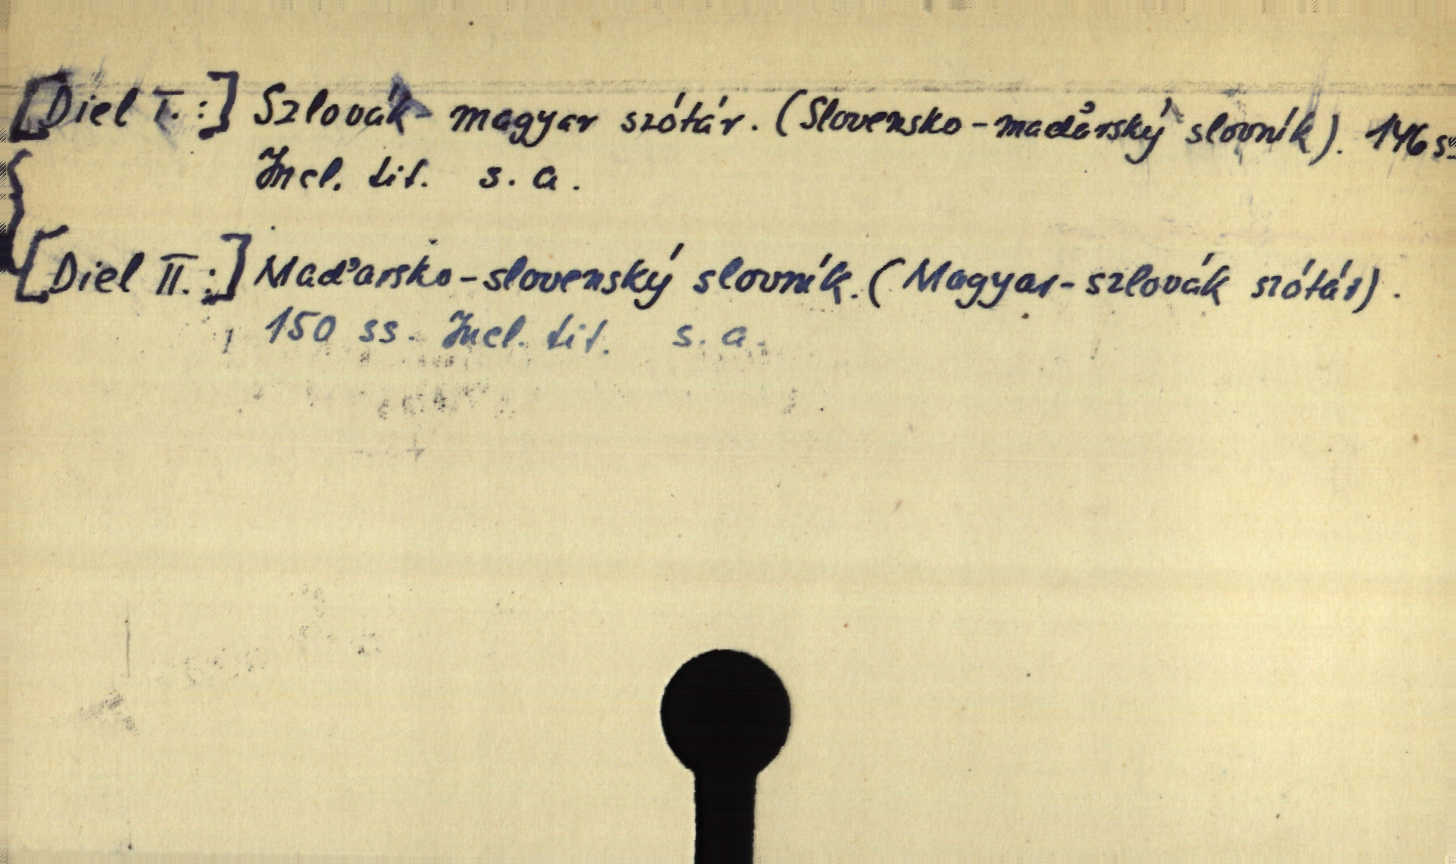 [Diel I.:] Szlovák - magyar szótár. (Slovensko - maďarský slovník). 146 ss
Incl. tit. s. a.
[Diel II.:] Maďarsko - slovenský slovník. (Magyar - szlovák szótár).
150 ss. Incl. tit. s. a.